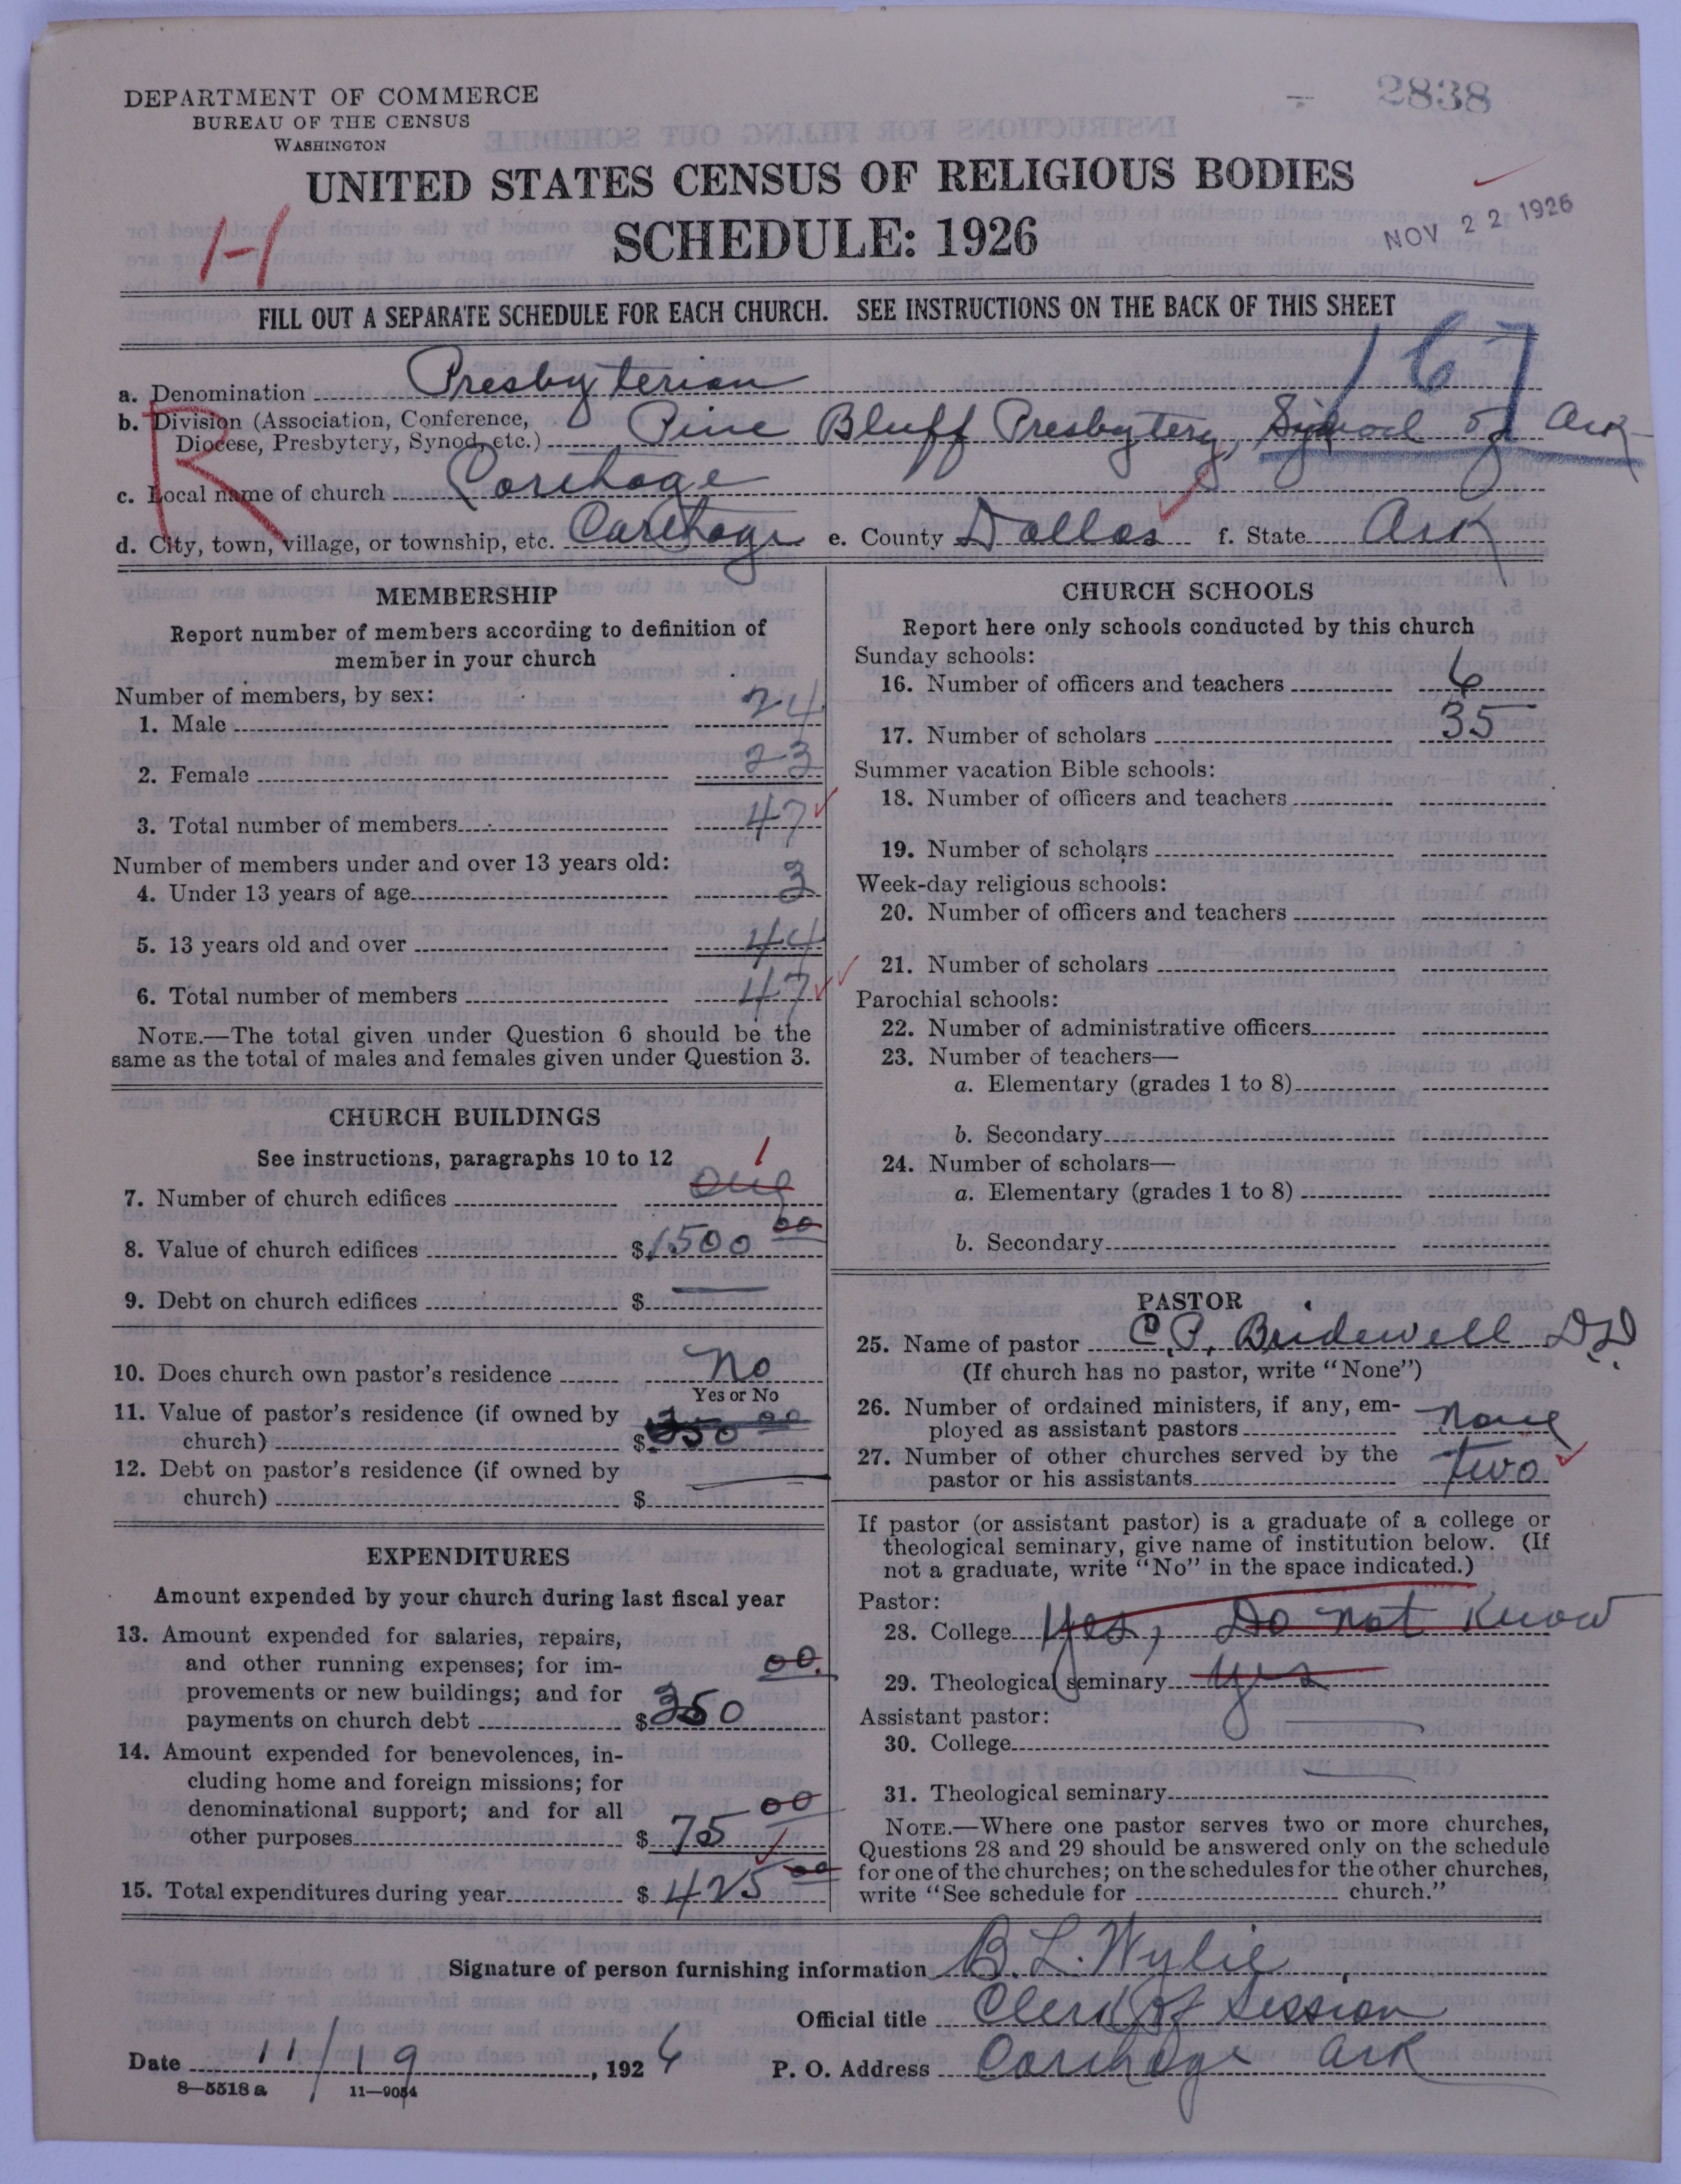 DEPARTMENT OF COMMERCE
BUREAU OF THE CENSUS
WASHINGTON
2838
UNITED STATES CENSUS OF RELIGIOUS BODIES
SCHEDULE: 1926
NOV 22 1926
H
FILL OUT A SEPARATE SCHEDULE FOR EACH CHURCH. SEE INSTRUCTIONS ON THE BACK OF THIS SHEET
167
a. Denomination Presbyterian
b. Division (Association, Conference,
Diocese, Presbytery, Synod, etc.) Pine Bluff Presbytery, Synod of Ark
R
c. Local name of church Carthage
d. City, town, village, or township, etc. Carthage e. County Dallas f. State Ark
MEMBERSHIP
Report number of members according to definition of
member in your church
Number of members, by sex:
1. Male 24
2. Female 23
3. Total number of members 47
Number of members under and over 13 years old:
4. Under 13 years of age 3
5. 13 years old and over 44
6. Total number of members 47
NOTE.—The total given under Question 6 should be the
same as the total of males and females given under Question 3.
CHURCH BUILDINGS
See instructions, paragraphs 10 to 12
1
7. Number of church edifices one
8. Value of church edifices $1500 00
9. Debt on church edifices $ —
10. Does church own pastor's residence No
Yes or No
11. Value of pastor's residence (if owned by
church) $
12. Debt on pastor's residence (if owned by
church) $ —
EXPENDITURES
Amount expended by your church during last fiscal year
13. Amount expended for salaries, repairs,
and other running expenses; for im-
provements or new buildings; and for
payments on church debt $350 00
14. Amount expended for benevolences, in-
cluding home and foreign missions; for
denominational support; and for all
other purposes $75 00
15. Total expenditures during year $425 00
CHURCH SCHOOLS
Report here only schools conducted by this church
Sunday schools:
16. Number of officers and teachers 6
17. Number of scholars 35
Summer vacation Bible schools:
18. Number of officers and teachers
19. Number of scholars
Week-day religious schools:
20. Number of officers and teachers
21. Number of scholars
Parochial schools:
22. Number of administrative officers
23. Number of teachers—
a. Elementary (grades 1 to 8)
b. Secondary
24. Number of scholars—
a. Elementary (grades 1 to 8)
b. Secondary
PASTOR
25. Name of pastor C. P. Bridewell DD
(If church has no pastor, write "None")
26. Number of ordained ministers, if any, em-
ployed as assistant pastors none
27. Number of other churches served by the
pastor or his assistants two
If pastor (or assistant pastor) is a graduate of a college or
theological seminary, give name of institution below. (If
not a graduate, write "No" in the space indicated.)
Pastor:
28. College Yes, Do not Know
29. Theological seminary yes
Assistant pastor:
30. College —
31. Theological seminary —
NOTE.—Where one pastor serves two or more churches,
Questions 28 and 29 should be answered only on the schedule
for one of the churches; on the schedules for the other churches,
write "See schedule for church."
Signature of person furnishing information B. L. Wylie
Official title Clerk of Session
Date 11/19, 1926 P. O. Address Carthage Ark
8—5518 a 11—9054